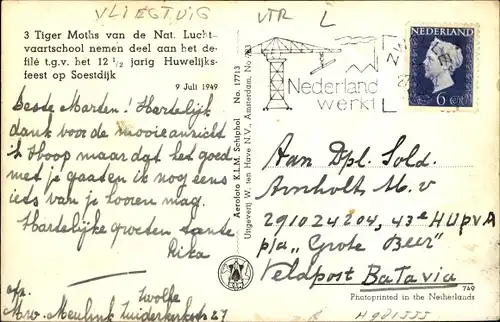 VLIEGTUIG
VTR L
3 Tiger Moths van de Nat. Lucht-
vaartschool nemen deel aan het de-
filé t.g.v. het 12 1/2 jarig Huwelijks-
feest op Soestdijk
9 Juli 1949
beste Marten! Hartelijk
dank voor de mooie ansicht
'k Hoop maar dat het goed
met je gaat en ik nog eens
iets van je horen mag.
Hartelijke groeten tante
Rika
afz. Zwolle
Mw. Meulink Zuiderkerkstr 27
Aerofoto K.L.M. Schiphol No. 17713
Uitgeverij W. ten Have N.V., Amsterdam, No.
Nederland
werkt
NEDERLAND
6 CENT
Aan Dpl. Sold.
Arnholts M. v
291024204, 43e HUPVA
p/a „Grote Beer"
Veldpost Batavia
749
Photoprinted in the Netherlands